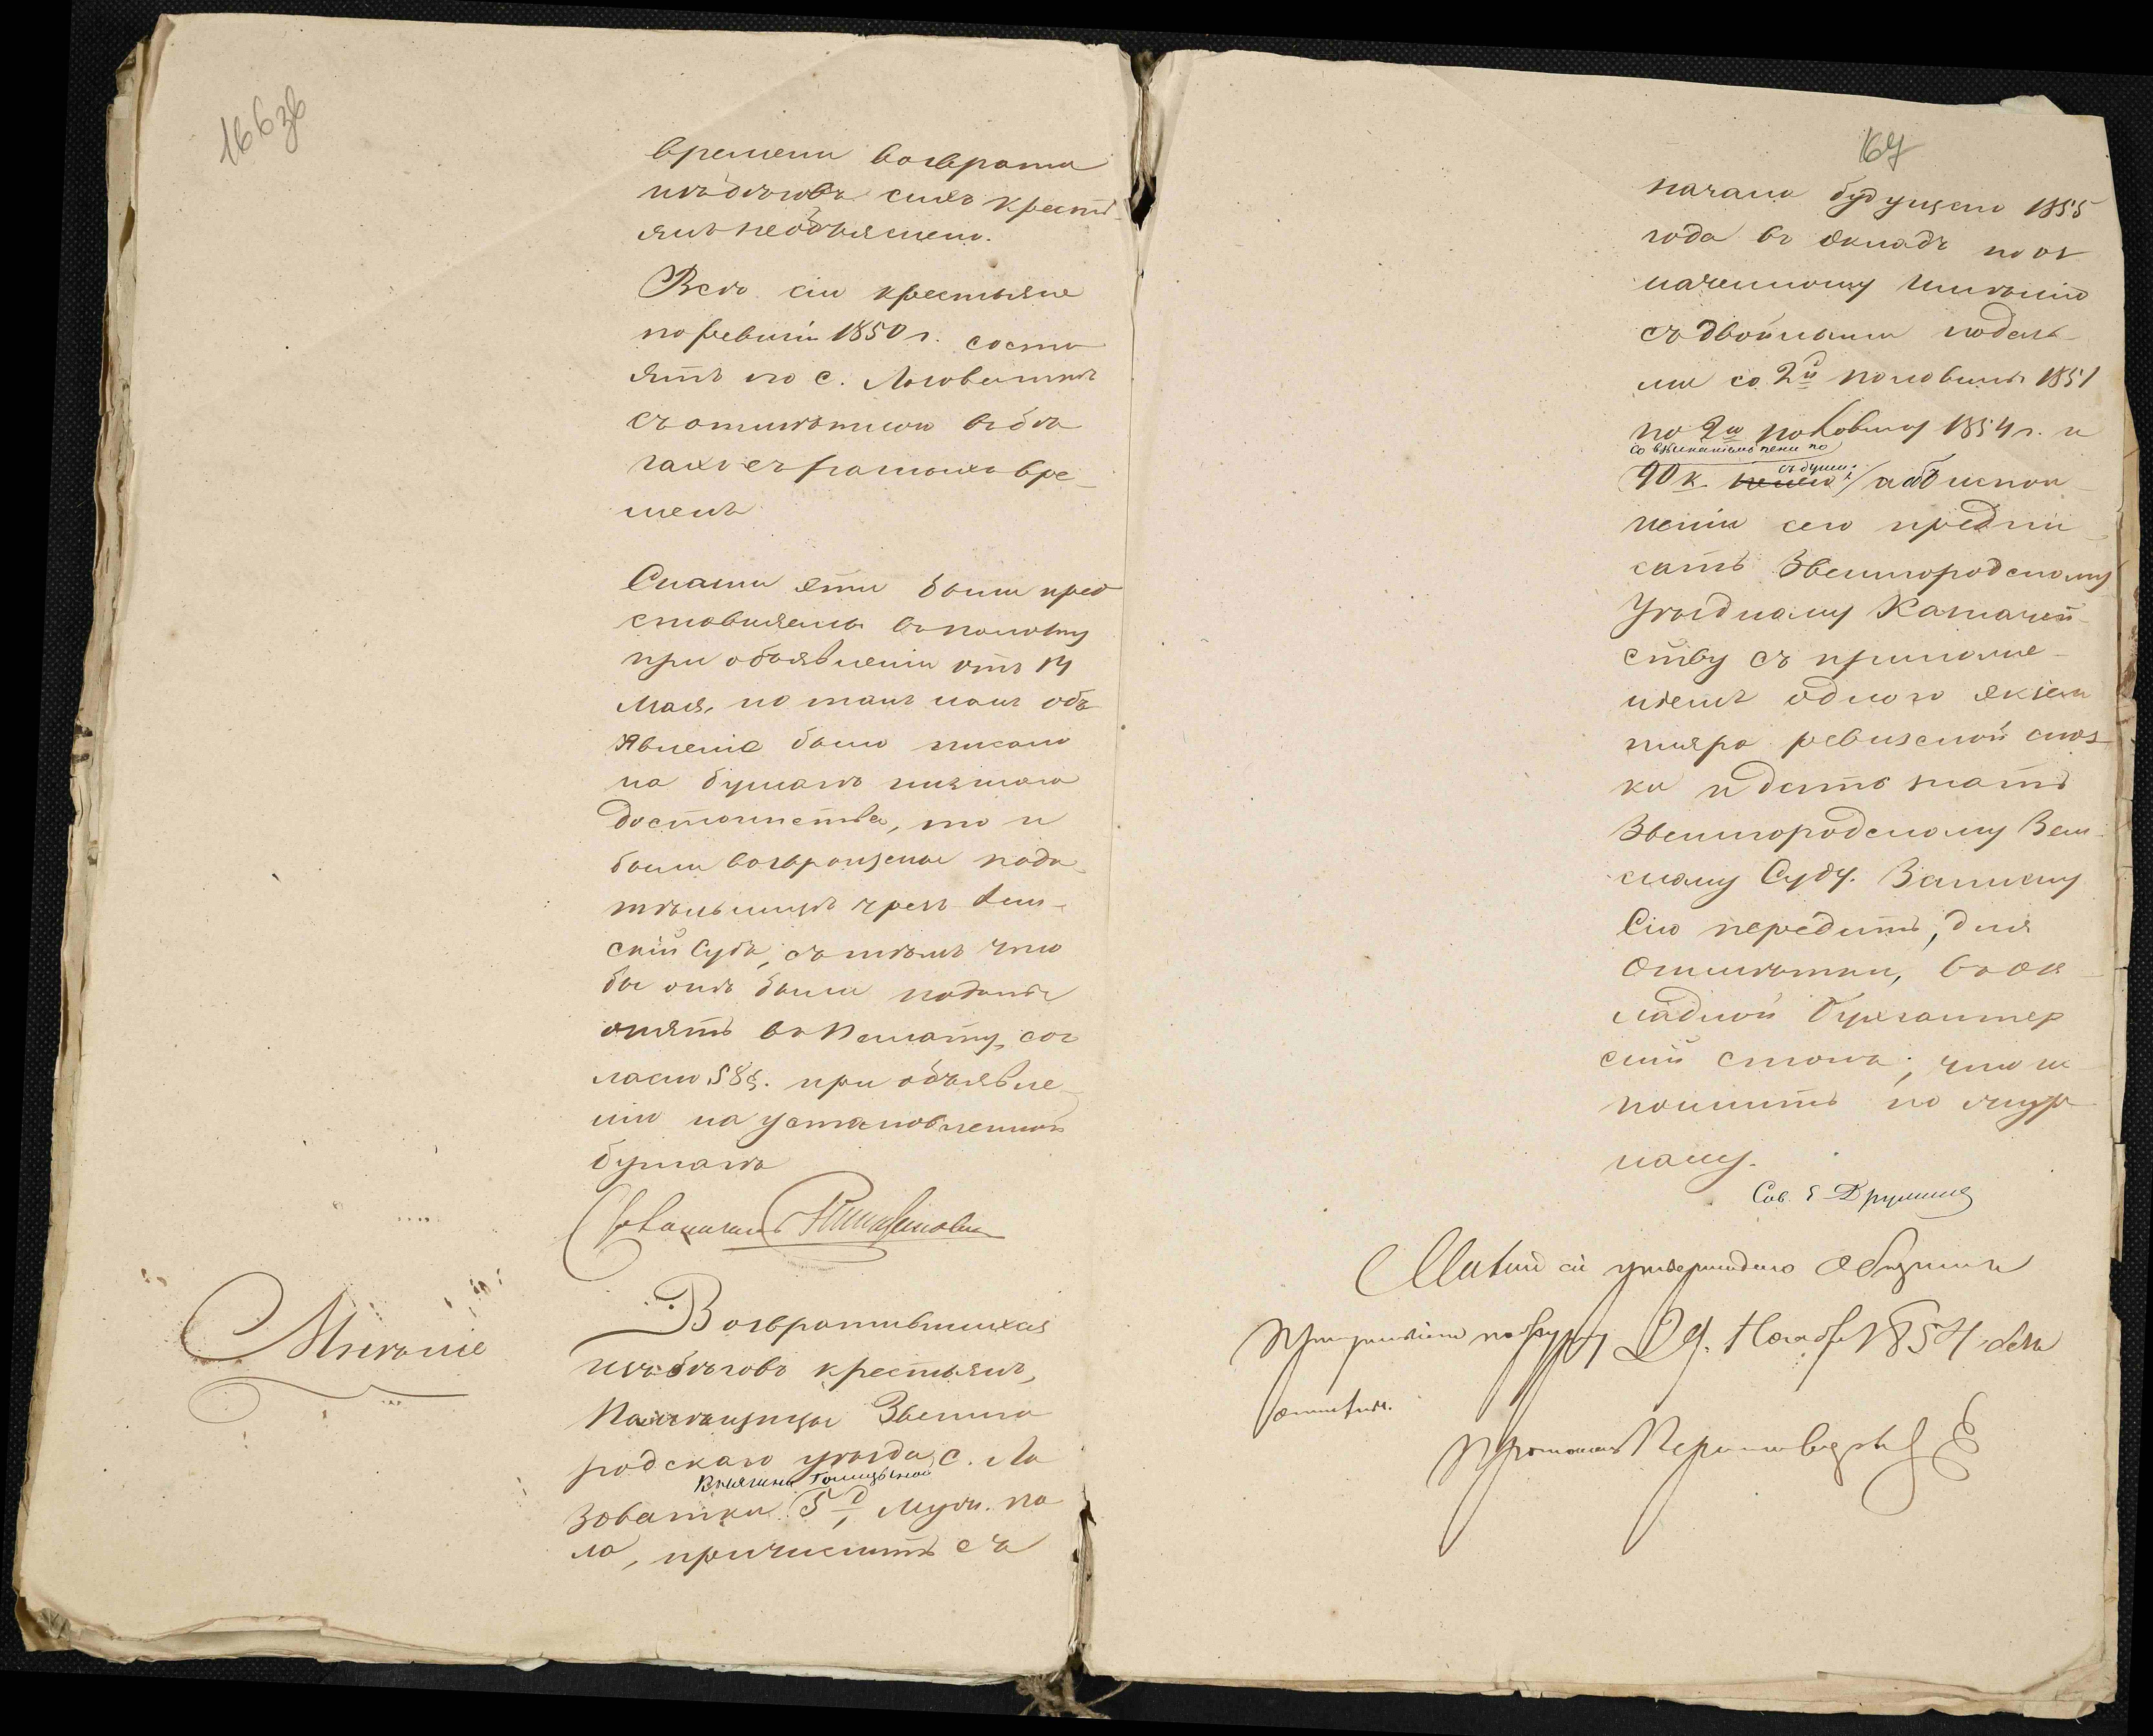 166 об
времени возврата
изъ бѣговъ сихъ кресть-
янъ необъяснено.
Всѣ сіи крестьяне
по ревизіи 1850 г. состо
ятъ по с. Лызоватки
съ отмѣткою въ бѣ
гахъ съ разныхъ вре-
менъ
Сказки эти были пред
ставляемы въ палату
при объявленіи отъ 14
Мая, но такъ какъ объ
явленіе было писано
на бумагѣ низшаго
достоинства, то и
были возвращены пода-
тельницѣ чрезъ Зем-
скій Судъ, съ тѣмъ что
бы онѣ были поданы
опять въ Палату, сог
ласно 585. при объявле-
ніи на установленной
бумагѣ
Мнѣніе
Возвратившихся
изъ бѣговъ крестьянъ,
Помѣщицы Звениго
родскаго уѣзда, с. Ло
Княгини Голицыной
зоватки 5 д, муж. по
ла, причислить съ
167
начала будущаго 1855
года въ окладъ по оз
наченному имѣнію
съ двойными податя-
ми со 2й половины 1851
по 2ю половину 1854 г. и
со взысканіемъ пени по
90 к. съ души, а объ испол-
неніи сего предпи-
сать Звенигородскому
Уѣздному Казначей-
ству съ приложе-
ніемъ одного экзем
пляра ревизской сказ-
ки и дать знать
Звенигородскому Зем-
скому Суду. Записку
Сію передать, для
отмѣтки, въ ок-
ладной Бухгалтер
скій столъ; что ис
полнить по жур
налу.
Сов.
Мнѣніе сіе утверждено Общимъ
29. Ноября 1854